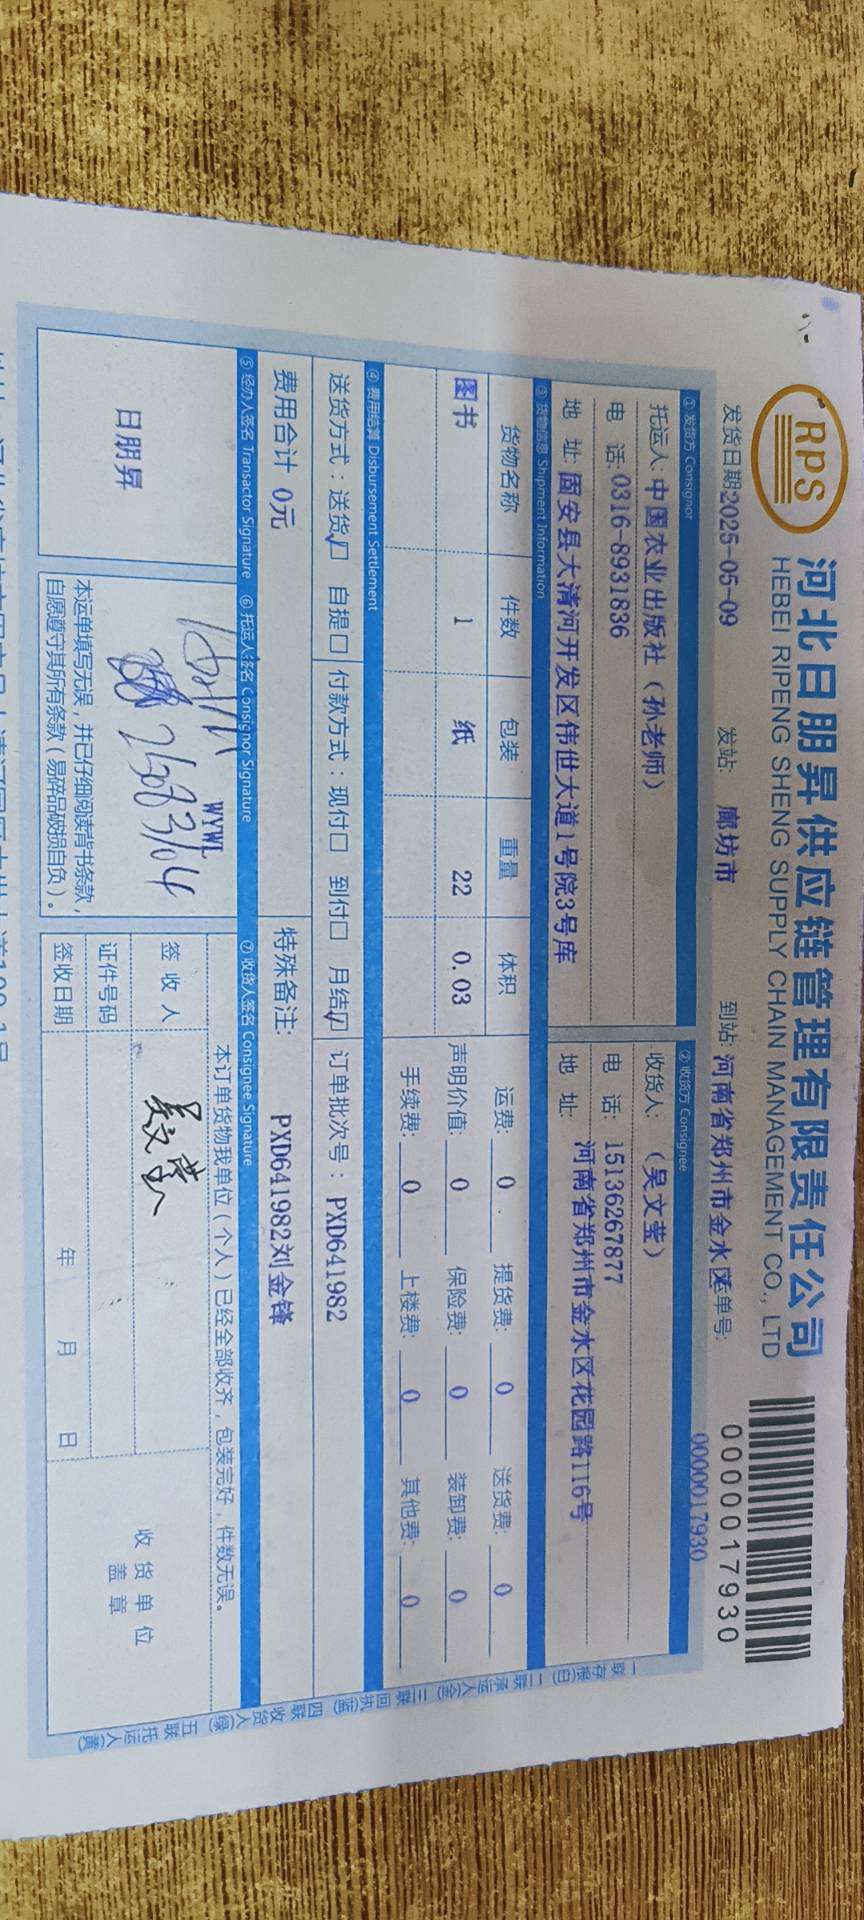 RPS
河北日朋昇供应链管理有限责任公司
HEBEI RIPENG SHENG SUPPLY CHAIN MANAGEMENT CO., LTD
0000017930
发货日期2025-05-09 发站: 廊坊市 到站: 河南省郑州市金水区 运单号: 0000017930
① 发货方 Consignor ② 收货方 Consignee
托运人: 中国农业出版社(孙老师) 收货人: (吴文莹)
电 话: 0316-8931836 电 话: 15136267877
地 址: 固安县大清河开发区伟世大道1号院3号库 地 址: 河南省郑州市金水区花园路116号
③ 货物信息 Shipment Information
货物名称 件数 包装 重量 体积 运费: 0 提货费: 0 送货费: 0
图书 1 纸 22 0.03 声明价值: 0 保险费: 0 装卸费: 0
手续费: 0 上楼费: 0 其他费: 0
④ 费用结算 Disbursement Settlement
送货方式:送货☑ 自提☐ 付款方式:现付☐ 到付☐ 月结☑ 订单批次号:PXD641982
费用合计 0元 特殊备注: PXD641982刘金锋
⑤ 经办人签名 Transactor Signature ⑥ 托运人签名 Consignor Signature ⑦ 收货人签名 Consignee Signature
日朋昇
WYWL
本运单填写无误,并已仔细阅读背书条款,
自愿遵守其所有条款(易碎品破损自负)。
本订单货物我单位(个人)已经全部收齐,包装完好,件数无误。
签 收 人 吴文莹
证件号码
签收日期 年 月 日
收货单位
盖章
一联存根(白) 二联承运人(金) 三联回执(蓝) 四联收货人(绿) 五联托运人(黄)